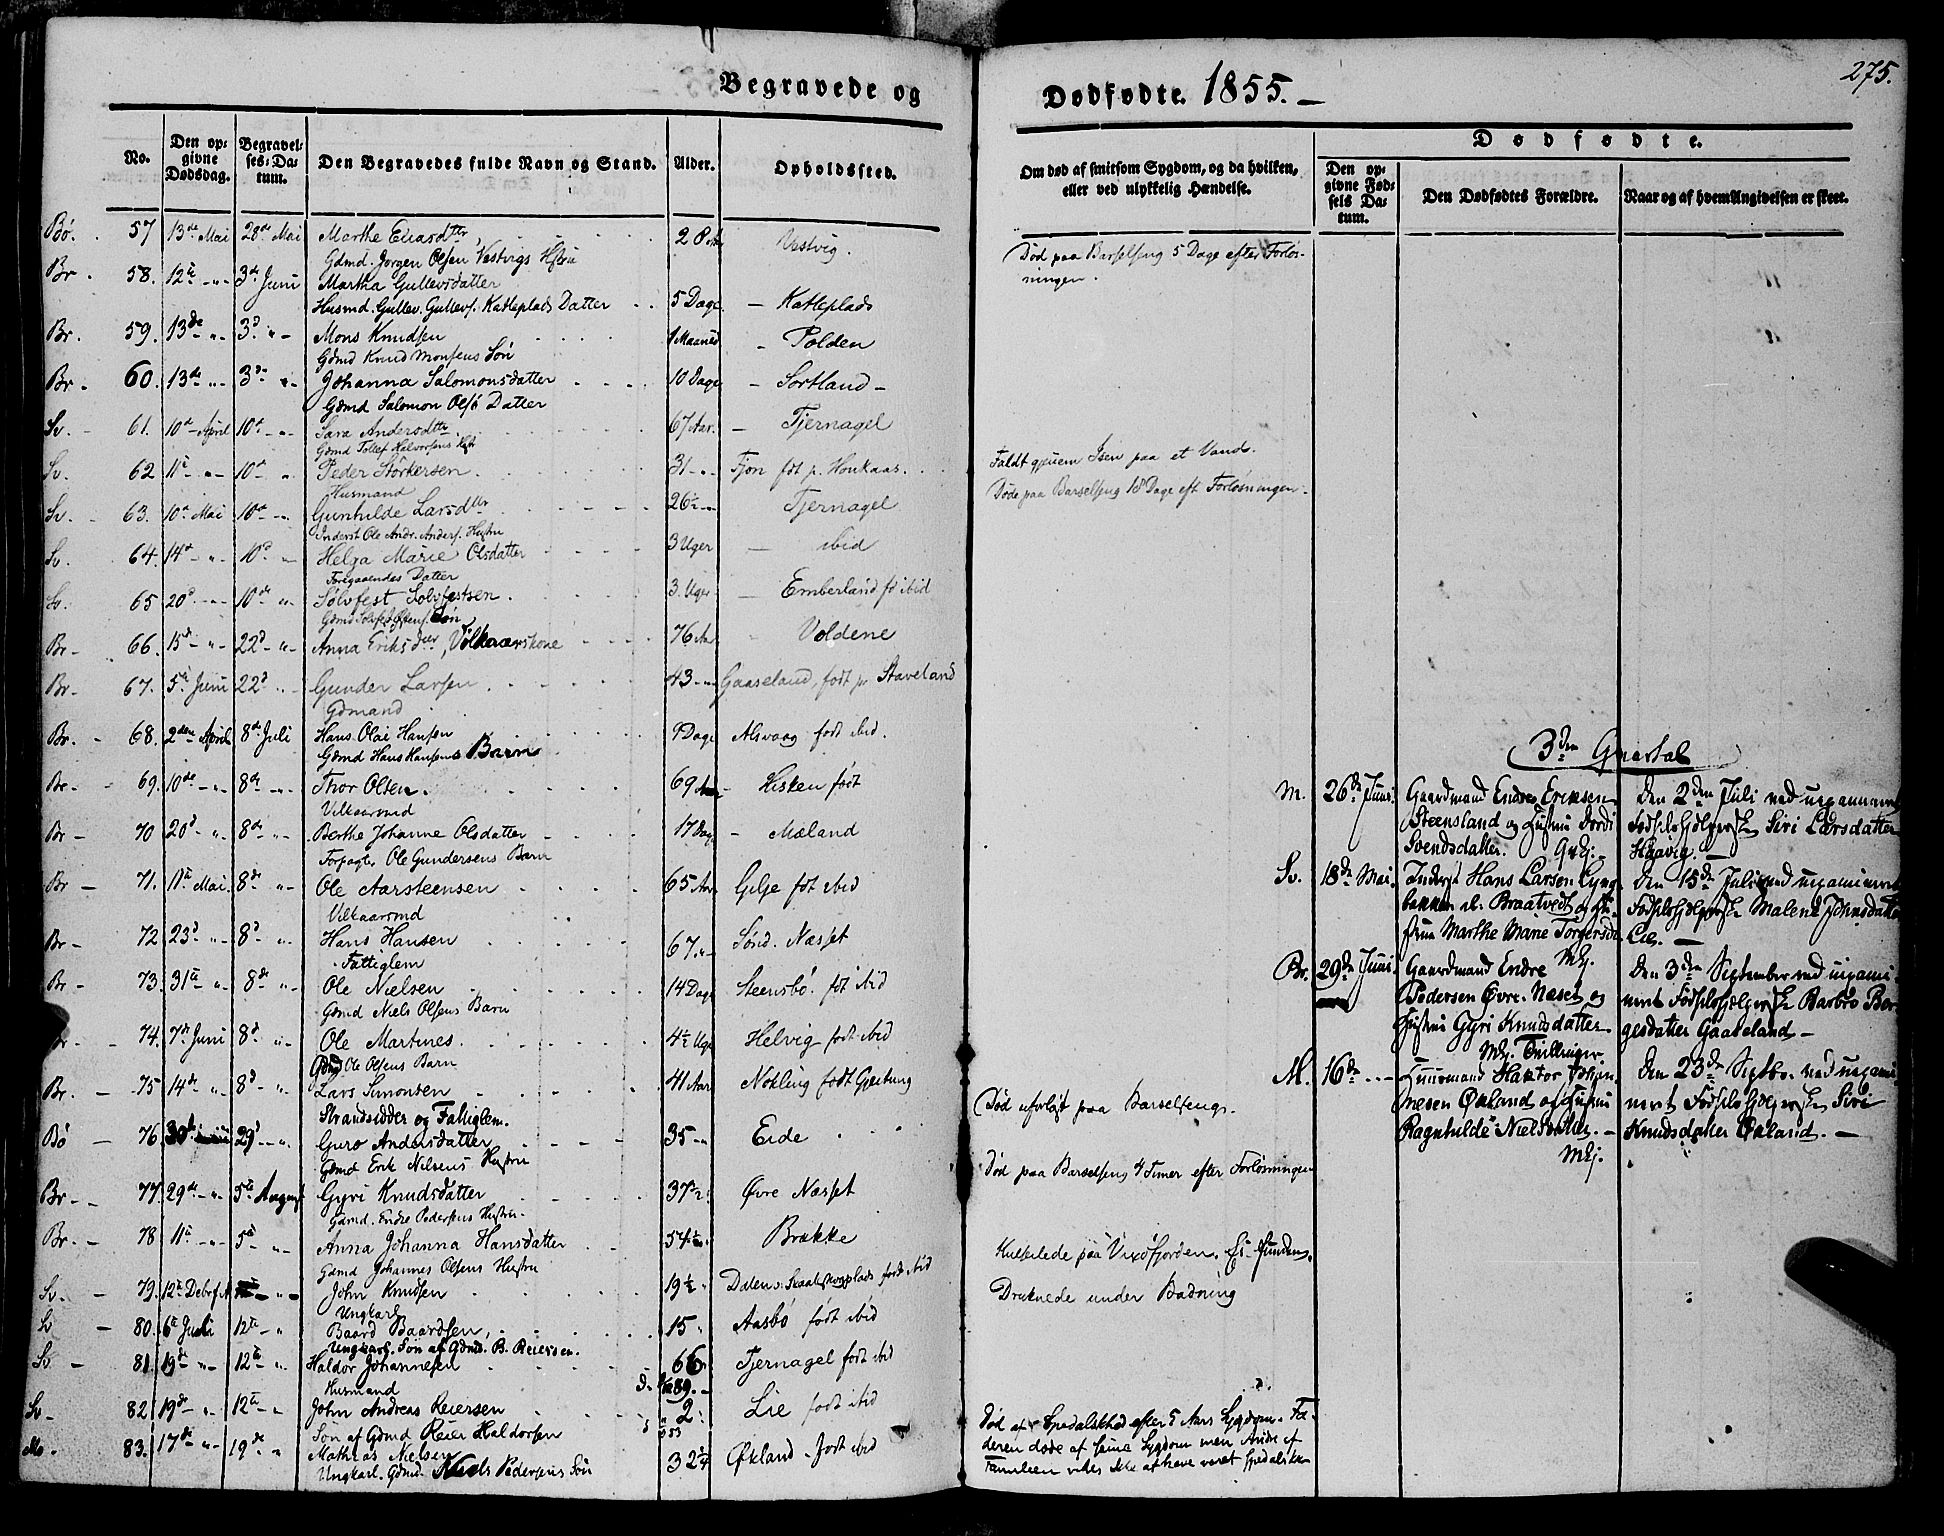 Begravede og
Dødfødte. 1855. —
275.
No.
Den opgivne Dødsdag.
Begravelses-Datum.
Den Begravedes fulde Navn og Stand.
Alder.
Opholdssted.
Om død af smitsom Sygdom, og da hvilken, eller ved ulykkelig Hændelse.
Dødfødte.
Den opgivne Fødsels Datum.
Den Dødfødtes Forældre.
Naar og af hvem Angivelsen er skeet.
Bø. 57 13de Mai 28de Mai Marthe Eliasdtr, Vestvig.
Gdmd. Jørgen Olsen Vestvigs Hstru Død paa Barselseng 5 Dage efter Forløs-
ningen.
Br. 58. 12te -"- 3de Juni Martha Gullevsdatter
Husmd. Gullev Gullevs. Katleplads Datter 5 Dage — Katleplads
Br. 59. 13de -"- 3d "- Mons Knudsen 1 Maaned - Polden
Gdmd Knud Monsens Søn
Br- 60. 13de -"- 3de Johanna Salomonsdatter 10 Dage - Sortland -
Gdmd Salomon Olsø Datter
Sv. - 61. 10de April 10de -"- Sara Andersdtr 67 Aar. — Tjernagel
Gdmd Tollef Halvorsens Hst
Sv. 62 11te -"- 10de " Peder Størkersen 31 -"- Fjon født p. Houkaas. Faldt gjenem Isen paa et Vand.
Husmand
Sv. - 63. 10de Mai 10de -"- Gunhilde Larsdtr 26½ -"- Tjernagel Døde paa Barselseng 18 Dage eft Forløsningen.
Inderst Ole Andr. Anders. Hustru
Sv. 64. 14de -"- 10d " Helga Marie Olsdatter 3 Uger — ibid
Foregaaendes Datter
Sv. 65 20d -"- 10de "- Sølvfest Solvfestsen. 3. Uger — Emberland fø ibid
Gdmd Solvfest Søn
Br- 66. 15de "- 22d "- Anna Eriksdtr, Vilkaarskone 76 Aar - Voldene
Br- 67. 5te Juni 22d "- Gunder Larsen. 43 -"- Gaaseland, født p. Staveland
Gdmand
Br. - 68. 2den April 8de Juli Hans Olai Hansen 9 Dage Alsvaag født ibid.
Gdmd Hans Hansens Barn
Br- - 69. 10de -"- 8de "- Thor Olsen. 69 Aar - Hisken født
Vilkaarsmd
Br - 70 20d " 8de "- Berthe Johanne Olsdatter 17 Dage - Mæland
Forpagtr Ole Gundersens Barn
Br - 71. 11te Mai 8de "- Ole Aarsteensen 65 Aar Gilje født ibid
Vilkaarsmd
Br- 72 23d " 8d "- Hans Hansen 67 "- Sønd. Næsset
Fattiglem
Br - 73. 31te " 8de " Ole Nielsen 14 Dage Steensbø. født ibid
Gdmd Niels Olsens Barn
Br - 74. 7de Juni 8d "- Ole Martines. 4½ Uge Helvig født ibid
Gdmd Ole Olsens Barn
Br. - 75 14de "- 8d - " Lars Simonsen 41 Aar Nokling født Gjerbung
Strandsidder og Fattiglem.
Bø — 76 30te 29d -"- Guro Andersdatter 35 -"- Eide Død uforløst paa Barselseng.
Gdmd Erik Nielsens Hustru
Br - 77 29de "- 5te August Gyri Knudsdatter 37½ Øvre Næsset Død paa Barselseng 4 Timer efter Forløsningen
Gdmd. Endre Pedersens Hustru.
Br. — 78 11te "- 5te "- Anna Johanna Hansdatter 54½ Brække
Gdmd Johannes Olsens Hustru
Sv. - 79. 12te Debr f.A. John Knudsen 19½ født ibid Kulseilede paa Vixøfjorden. Ei funden.
Ungkarl
Sv — 80. 6te Juli 12te " Baard Baardsen, 15 Aasbø født ibid Druknede under Badning
Ungkarl. Søn af Gdmd. B. Reiersen.
Sv - 81. 19de "- 12te " Haldor Johannesen 66 Tjernagel født ibid
Husmand
Sv - 82. 19de " 12te - " John Andreas Reiersen 2 Lie født ibid
Søn af Gdmd Reier Haldorsen
Mo. 83. 17de "- 19de " Mathias Nielsen 32¼ Økland - født ibid
Ungkarl. Gdmd. Niels Pedersens Søn
Død af Spedalskhed efter 5 Aars Sygdom. Fa-
deren døde af samme Sygdom men Andre af
Familien vides ikke at have været spedalske
3die Quartal
M. 26de Juni. Gaardmand Endre Eriksen
Steensland og Hustru Dordi
Svendsdatter.
Den 2den Juli ved uexamineret
Fødselshjælperske Siri Larsdatter
Haavig. —
Sv. 18de Mai. Inderst Hans Larsen Lyng-
bakken al. Braatvedt og Hu-
stru Marthe Marie Torgersd.
Mkj.
Den 15de Juli ved uexamineret
Fødselshjælperske Malene Johnsdatter
Lie. —
Br. 29de Juni Gaardmand Endre
Pedersen Øvre-Næset og
Hustru Gyri Knudsdatter
Mkj. Tvillinger.
Den 3die September ved uexami-
neret Fødselshjælperske Barbro Bør-
gesdatter Gaaseland —
M. 16de Huusmand Haktor Johan-
nesen Økland og Hustru
Ragnhilde Nielsdatter. —
Mkj.
Den 23de Septbr. ved uexami-
neret Fødselshjælperske Siri
Knudsdatter Økland. —